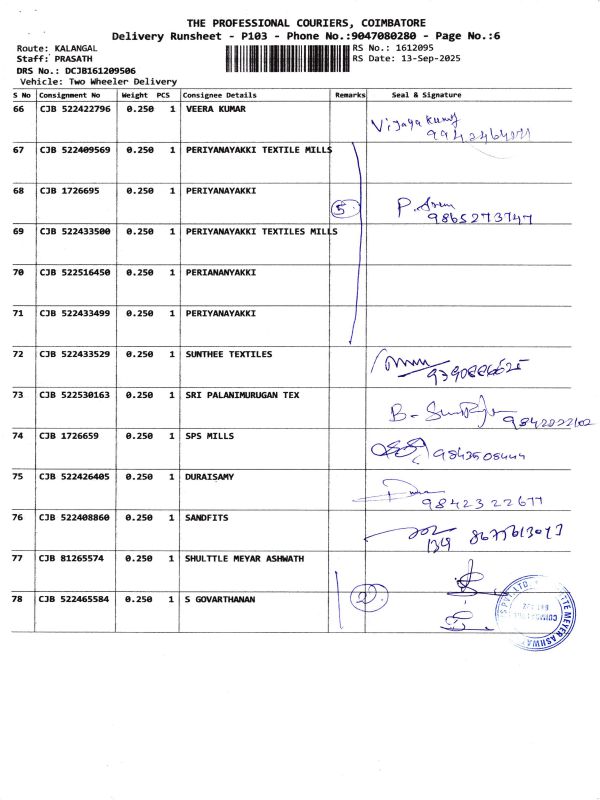 THE PROFESSIONAL COURIERS, COIMBATORE
Delivery Runsheet - P103 - Phone No.:9047080280 - Page No.:6
Route: KALANGAL
RS No.: 1612095
Staff: PRASATH
RS Date: 13-Sep-2025
DRS No.: DCJB161209506
Vehicle: Two Wheeler Delivery
S No Consignment No Weight PCS Consignee Details Remarks Seal & Signature
66 CJB 522422796 0.250 1 VEERA KUMAR
Vijaya Kumar
67 CJB 522409569 0.250 1 PERIYANAYAKKI TEXTILE MILLS
68 CJB 1726695 0.250 1 PERIYANAYAKKI
5
9865273747
69 CJB 522433500 0.250 1 PERIYANAYAKKI TEXTILES MILLS
70 CJB 522516450 0.250 1 PERIANANYAKKI
71 CJB 522433499 0.250 1 PERIYANAYAKKI
72 CJB 522433529 0.250 1 SUNTHEE TEXTILES
73 CJB 522530163 0.250 1 SRI PALANIMURUGAN TEX
74 CJB 1726659 0.250 1 SPS MILLS
75 CJB 522426405 0.250 1 DURAISAMY
9842322677
76 CJB 522408860 0.250 1 SANDFITS
77 CJB 81265574 0.250 1 SHULTTLE MEYAR ASHWATH
78 CJB 522465584 0.250 1 S GOVARTHANAN
2